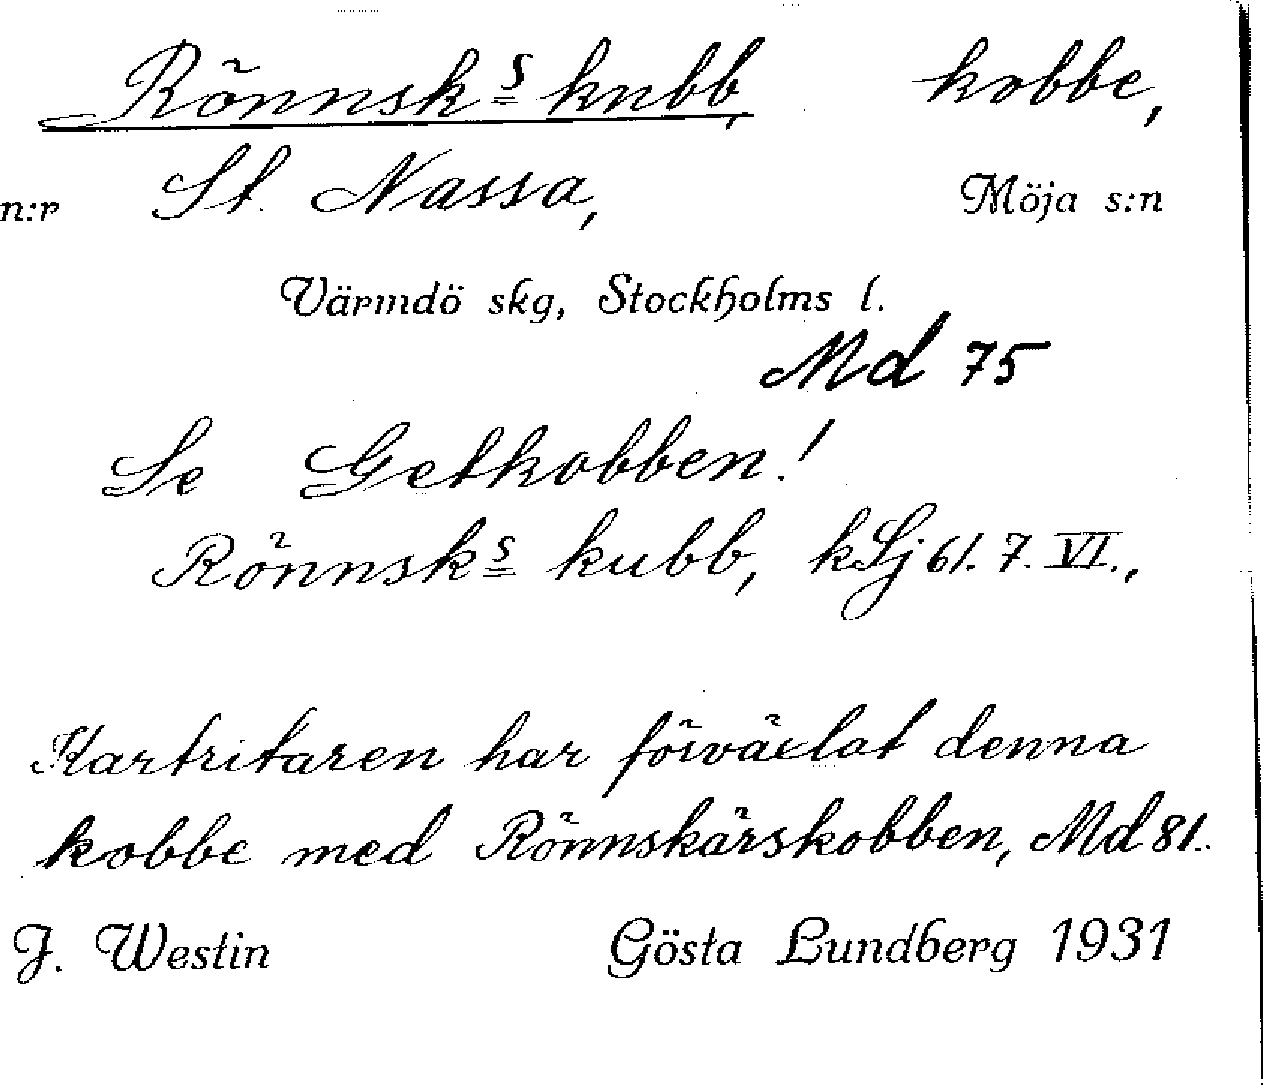 Rönnsk s kubb, kobbe,
n:r St. Nassa, Möja s:n
Värmdö skg, Stockholms l.
Md 75
Se Getkobben!
Rönnsk s kubb, kSj 61. 7. VI.,
Kartritaren har förväxlat denna
kobbe med Rönnskärskobben, Md 81.
J. Westin Gösta Lundberg 1931